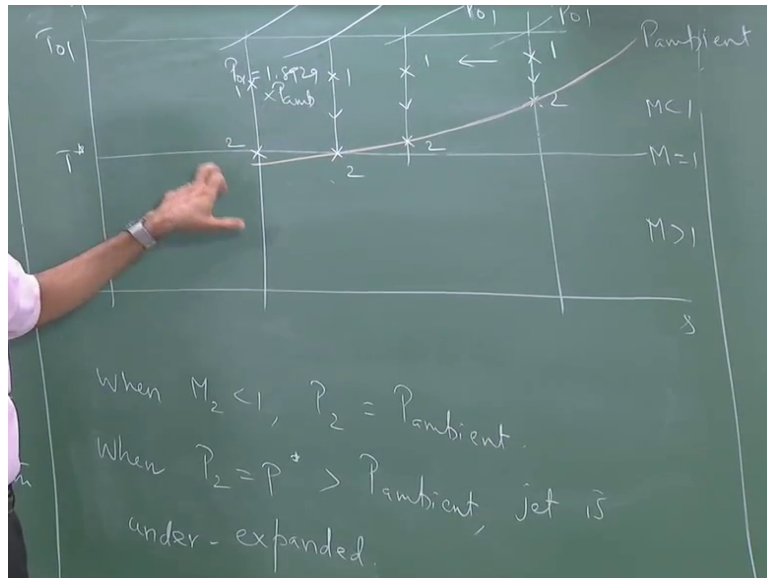 T01 P01 P01
Pambient
P01 = 1.8929 1 1 1
1 × Pamb
2 M<1
2 2
T* M=1
2
M>1
s
When M2 <1, P2 = Pambient.
When P2 = P* > Pambient, jet is
under-expanded.